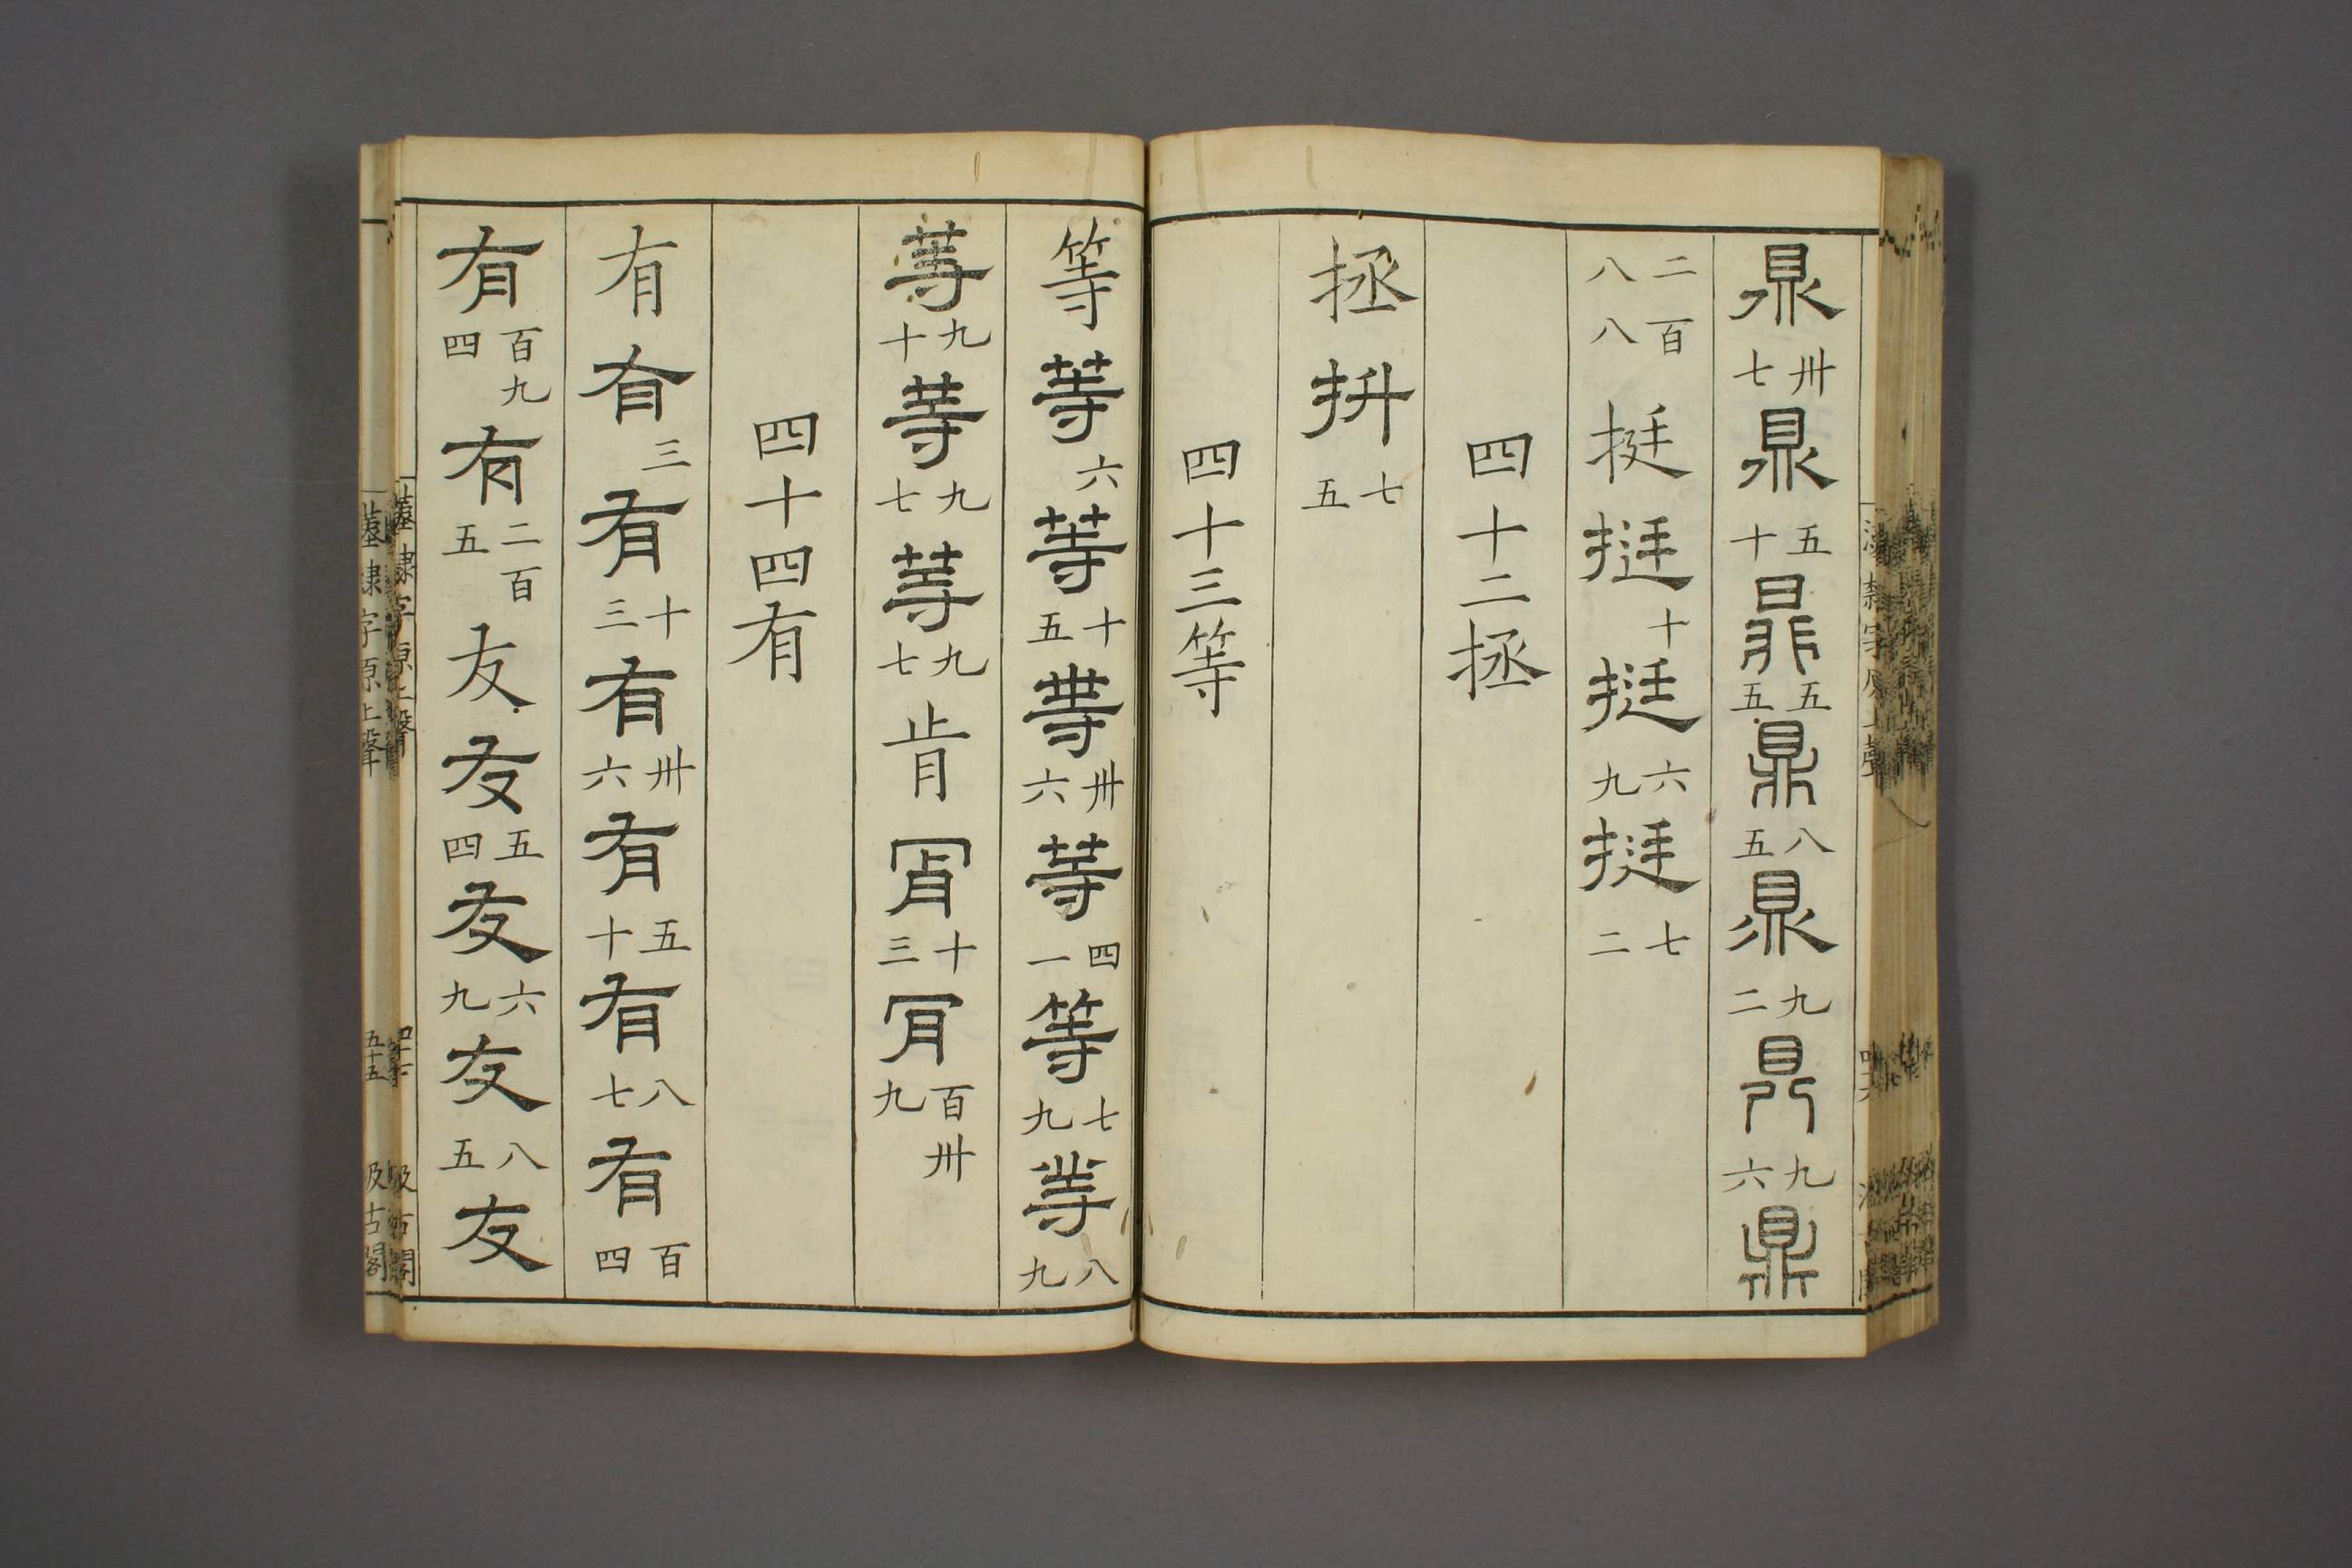 鼎卅七鼎五十鼎五五鼎八五鼎九二鼎九六鼎
二百八八挺挺十挺六九挺七二
四十二拯
拯抍七五
四十三等
等等六等十五等卅六等四一等七九等八九
等九十等九七等九七肯肎十三肎百卅九
四十四有
有有三有十三有卅六有五十有八七有百四
有百九四有二百五友友五四友六九友八五友
隸字原上聲
汲古閣
隸字原上聲
五十五
汲古閣